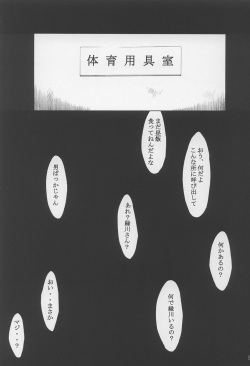 体育用具室
おう、何だよ
こんな所に呼び出して
まだ昼飯
食ってねんだよな
何かあるの？
あれ？緑川さん？
男ばっかじゃん
何で緑川いるの？
おい・・まさか
マジ・・？